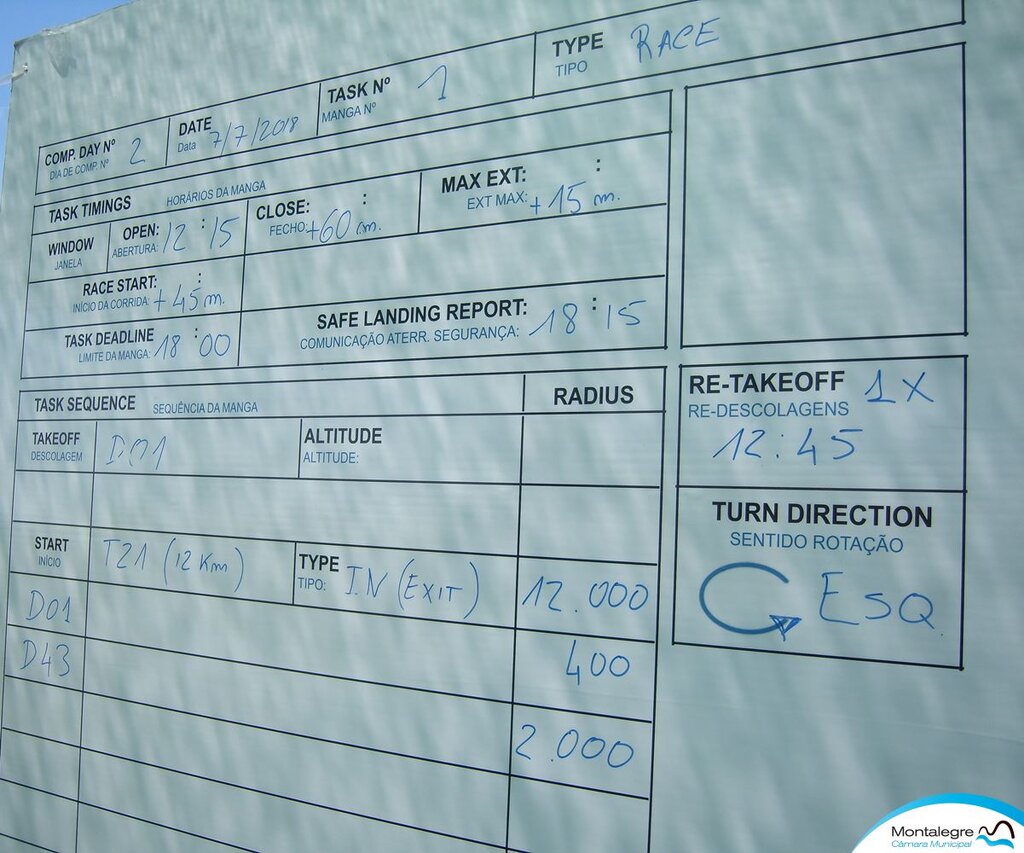 COMP. DAY Nº 2 DATE 7/7/2018 TASK Nº 1 TYPE RACE
DIA DE COMP. Nº Data MANGA Nº TIPO
TASK TIMINGS HORÁRIOS DA MANGA
WINDOW OPEN: 12:15 CLOSE: : +60 m. MAX EXT: : +15 m.
JANELA ABERTURA: FECHO: EXT MAX:
RACE START: : +45 m.
INÍCIO DA CORRIDA:
TASK DEADLINE 18:00 SAFE LANDING REPORT: 18:15
LIMITE DA MANGA: COMUNICAÇÃO ATERR. SEGURANÇA:
TASK SEQUENCE SEQUÊNCIA DA MANGA RADIUS
TAKEOFF D01 ALTITUDE
DESCOLAGEM ALTITUDE:
START T21 (12 Km) TYPE IN (EXIT) 12.000
INÍCIO TIPO:
D01 400
D43 2.000
RE-TAKEOFF 1X
RE-DESCOLAGENS
12:45
TURN DIRECTION
SENTIDO ROTAÇÃO
ESQ.
Montalegre
Câmara Municipal